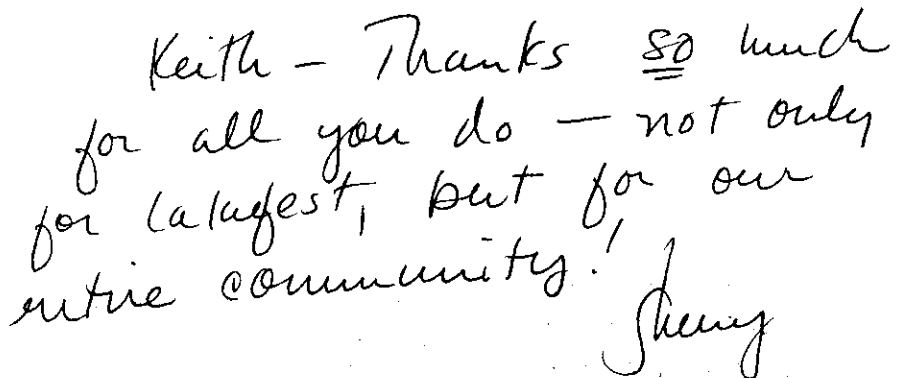 Keith – Thanks so much
for all you do – not only
for Lalafest, but for our
entire community!
Sherry